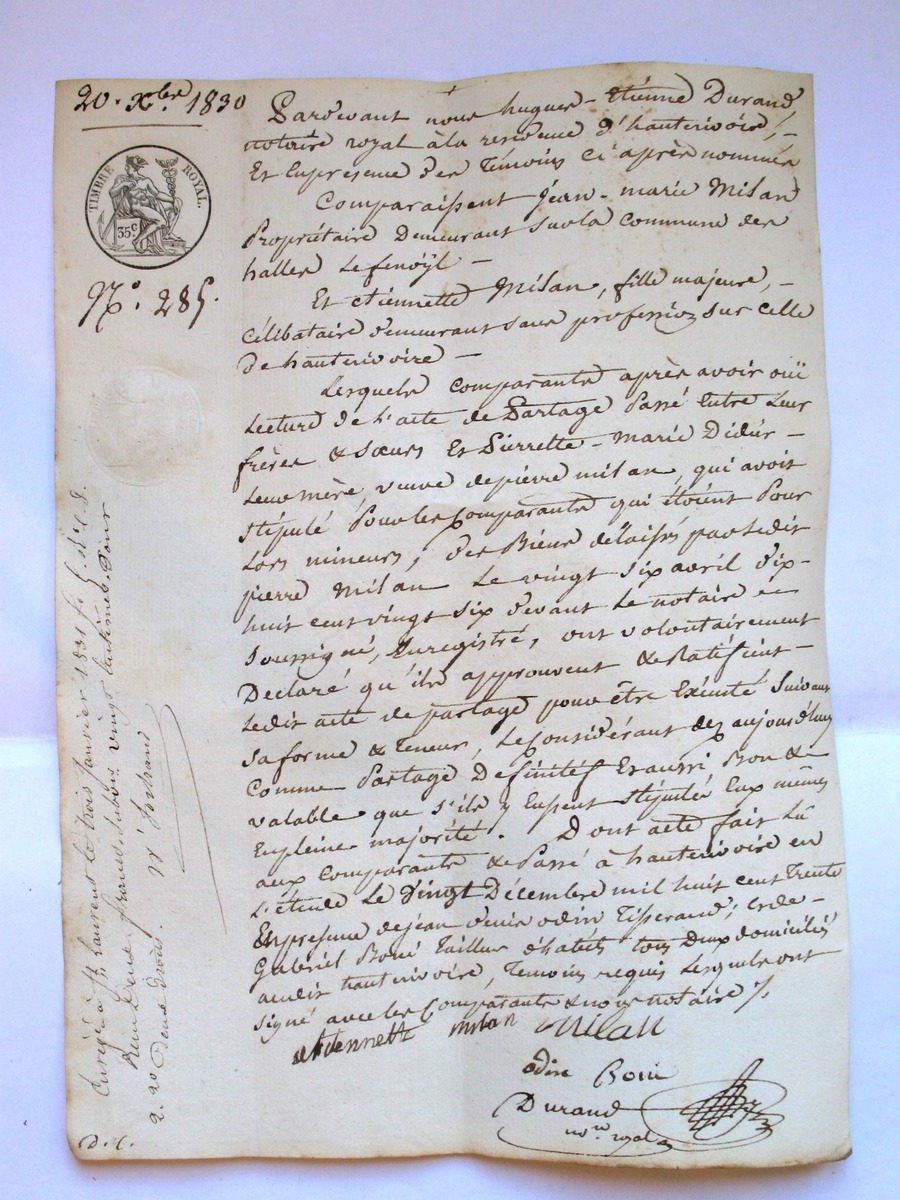 20. Xbre 1830
TIMBRE ROYAL.
35c
No. 285.
Pardevant nous hugues-Etienne Durand
notaire royal à la residence d'hauterivoire,
Et En presence des Témoins ci après nommés
Comparaissent jean-marie Milan
Propriétaire Demeurant sur la commune des
halles Le fenoÿl
Et etiennette Milan, fille majeure,
Célibataire demeurant sans profession sur celle
de hauterivoire
Lesquels comparants après avoir ouï
Lecture de l'acte de Partage Passé Entre Leurs
frères & sœurs Et Pierrette-Marie
Leur mère, veuve de pierre milan, qui avoit
stipulé Pour les Comparants qui étoient Pour
Lors mineurs, des Biens délaissés par Ledit
pierre Milan Le vingt six avril dix-
huit cent vingt six devant Le notaire
soussigné, Enregistré, ont volontairement
Déclaré qu'ils approuvent & Ratifient
Ledit acte de partage pour être Exécuté suivant
sa forme & Teneur, Le Considérant dez aujourd'huy
Comme Partage Definitif Et aussi Bon &
valable que s'ils y Eussent stipulés Eux mêmes
En pleine majorité. Dont acte fait Lû
aux Comparants & Passé à hauterivoire en
L'étude Le Vingt Décembre mil huit cent Trente
En presence de jean denis odin Tisserand, Et de
Gabriel Tailleur d'habits tous Deux domiciliés
audit hauterivoire, Temoins requis Lesquels ont
signé avec les Comparants & nous notaire
etiennette milan milan
odin
Durand
nore royal
Enregé à St Laurent le trois janvier 1831 f.
Reçu Deux francs, subvon vingt centimes
2. 20 Deux Droits.
D. C.